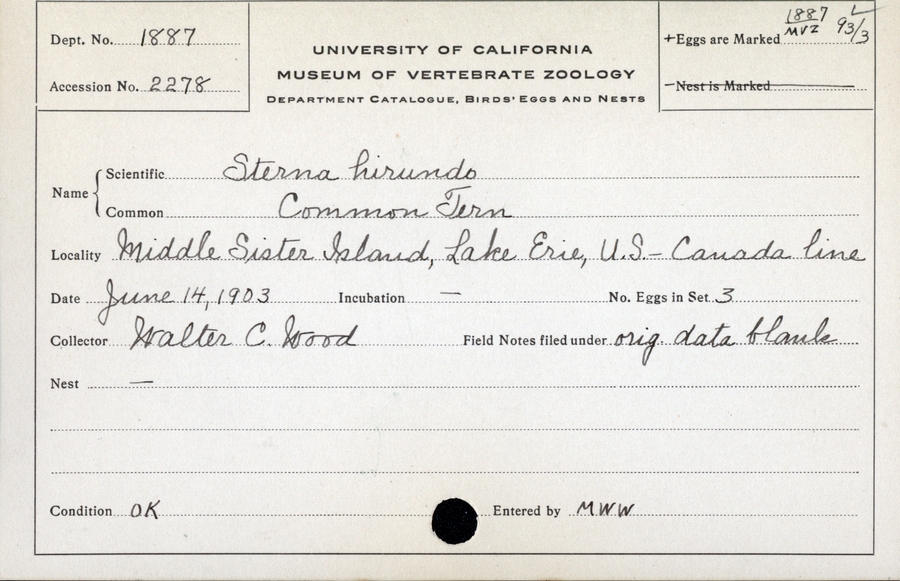 Dept. No. 1887
Accession No. 2278
UNIVERSITY OF CALIFORNIA
MUSEUM OF VERTEBRATE ZOOLOGY
DEPARTMENT CATALOGUE, BIRDS' EGGS AND NESTS
+Eggs are Marked 1887 MVZ 93/3
—Nest is Marked
Name
Scientific Sterna hirundo
Common Common Tern
Locality Middle Sister Island, Lake Erie, U.S.—Canada line
Date June 14, 1903 Incubation — No. Eggs in Set 3
Collector Walter C. Wood Field Notes filed under orig. data blank
Nest —
Condition OK Entered by MWW